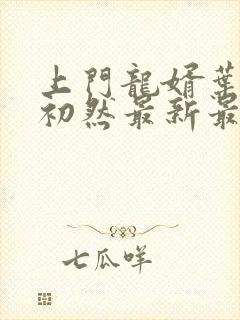 上門龍婿葉
初然最新最
七瓜咩